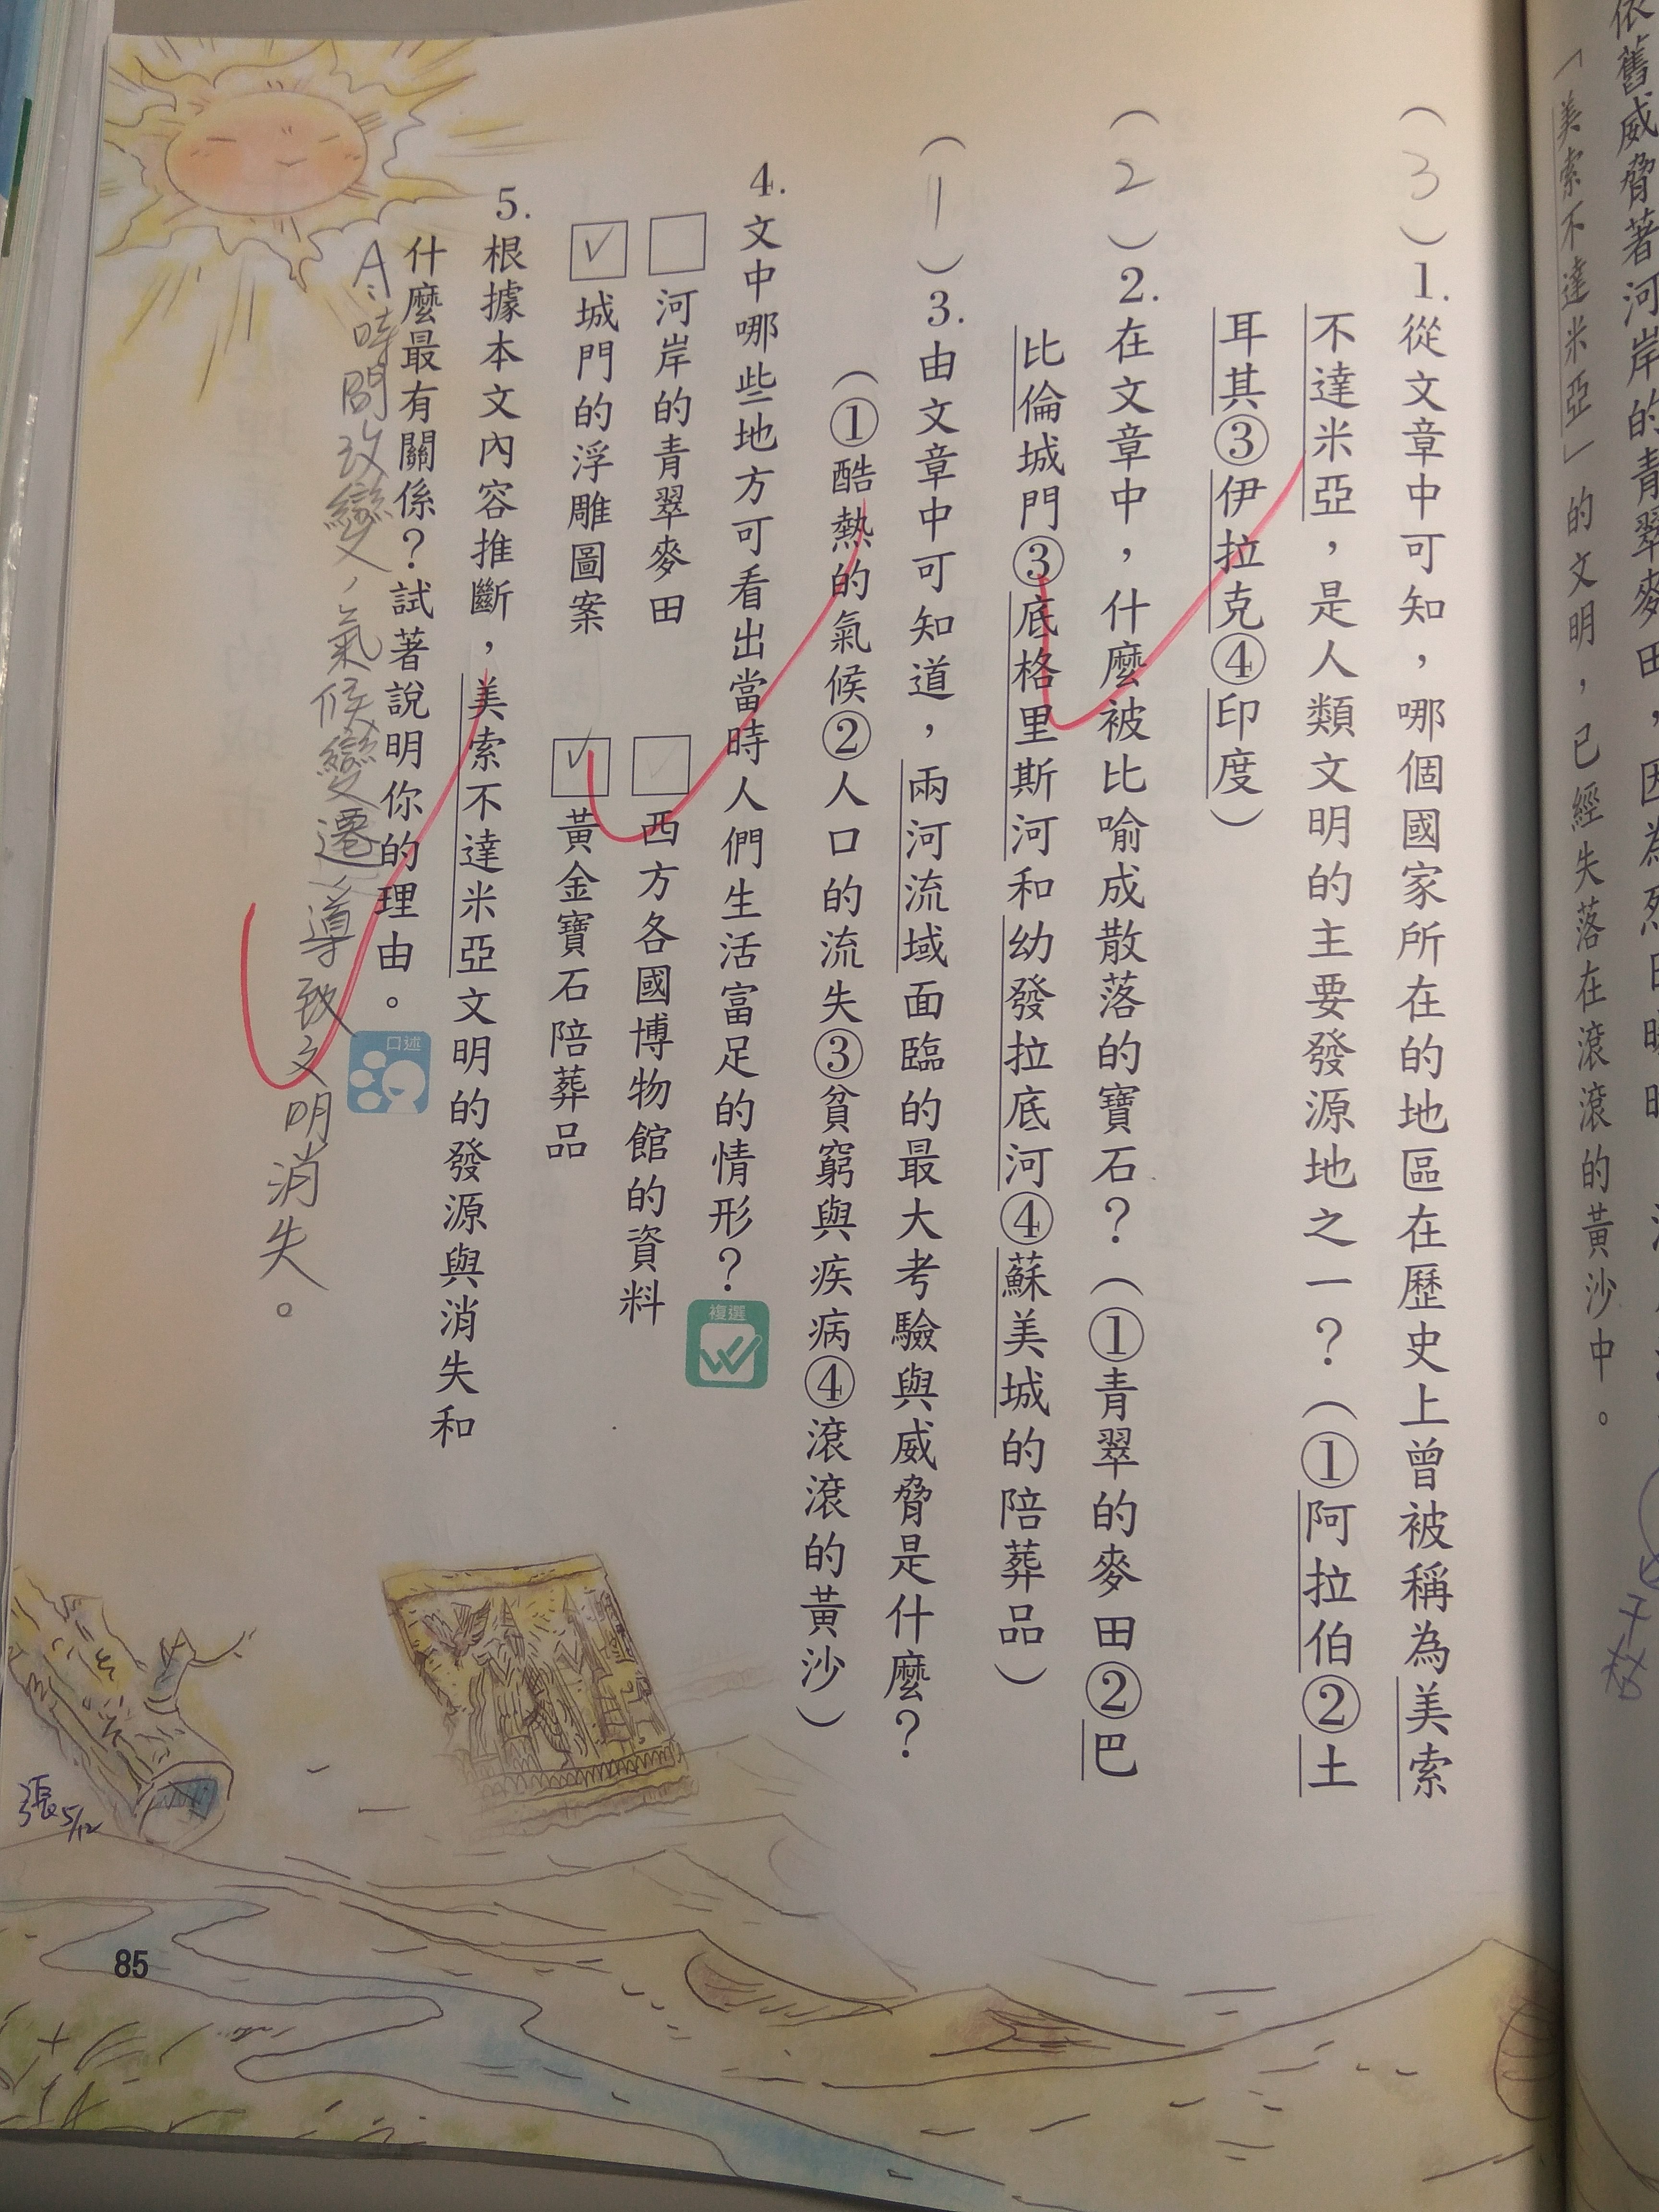 依舊威脅著河岸的青翠麥田，因為烈日
「美索不達米亞」的文明，已經失落在滾滾的黃沙中。
（3）1.從文章中可知，哪個國家所在的地區在歷史上曾被稱為美索
不達米亞，是人類文明的主要發源地之一？（①阿拉伯②土
耳其③伊拉克④印度）
（2）2.在文章中，什麼被比喻成散落的寶石？（①青翠的麥田②巴
比倫城門③底格里斯河和幼發拉底河④蘇美城的陪葬品）
（1）3.由文章中可知道，兩河流域面臨的最大考驗與威脅是什麼？
（①酷熱的氣候②人口的流失③貧窮與疾病④滾滾的黃沙）
4.文中哪些地方可看出當時人們生活富足的情形？
複選
□河岸的青翠麥田 □西方各國博物館的資料
☑城門的浮雕圖案 ☑黃金寶石陪葬品
5.根據本文內容推斷，美索不達米亞文明的發源與消失和
什麼最有關係？試著說明你的理由。
口述
A：時間改變，氣候變遷，導致文明消失。
張5/12
85